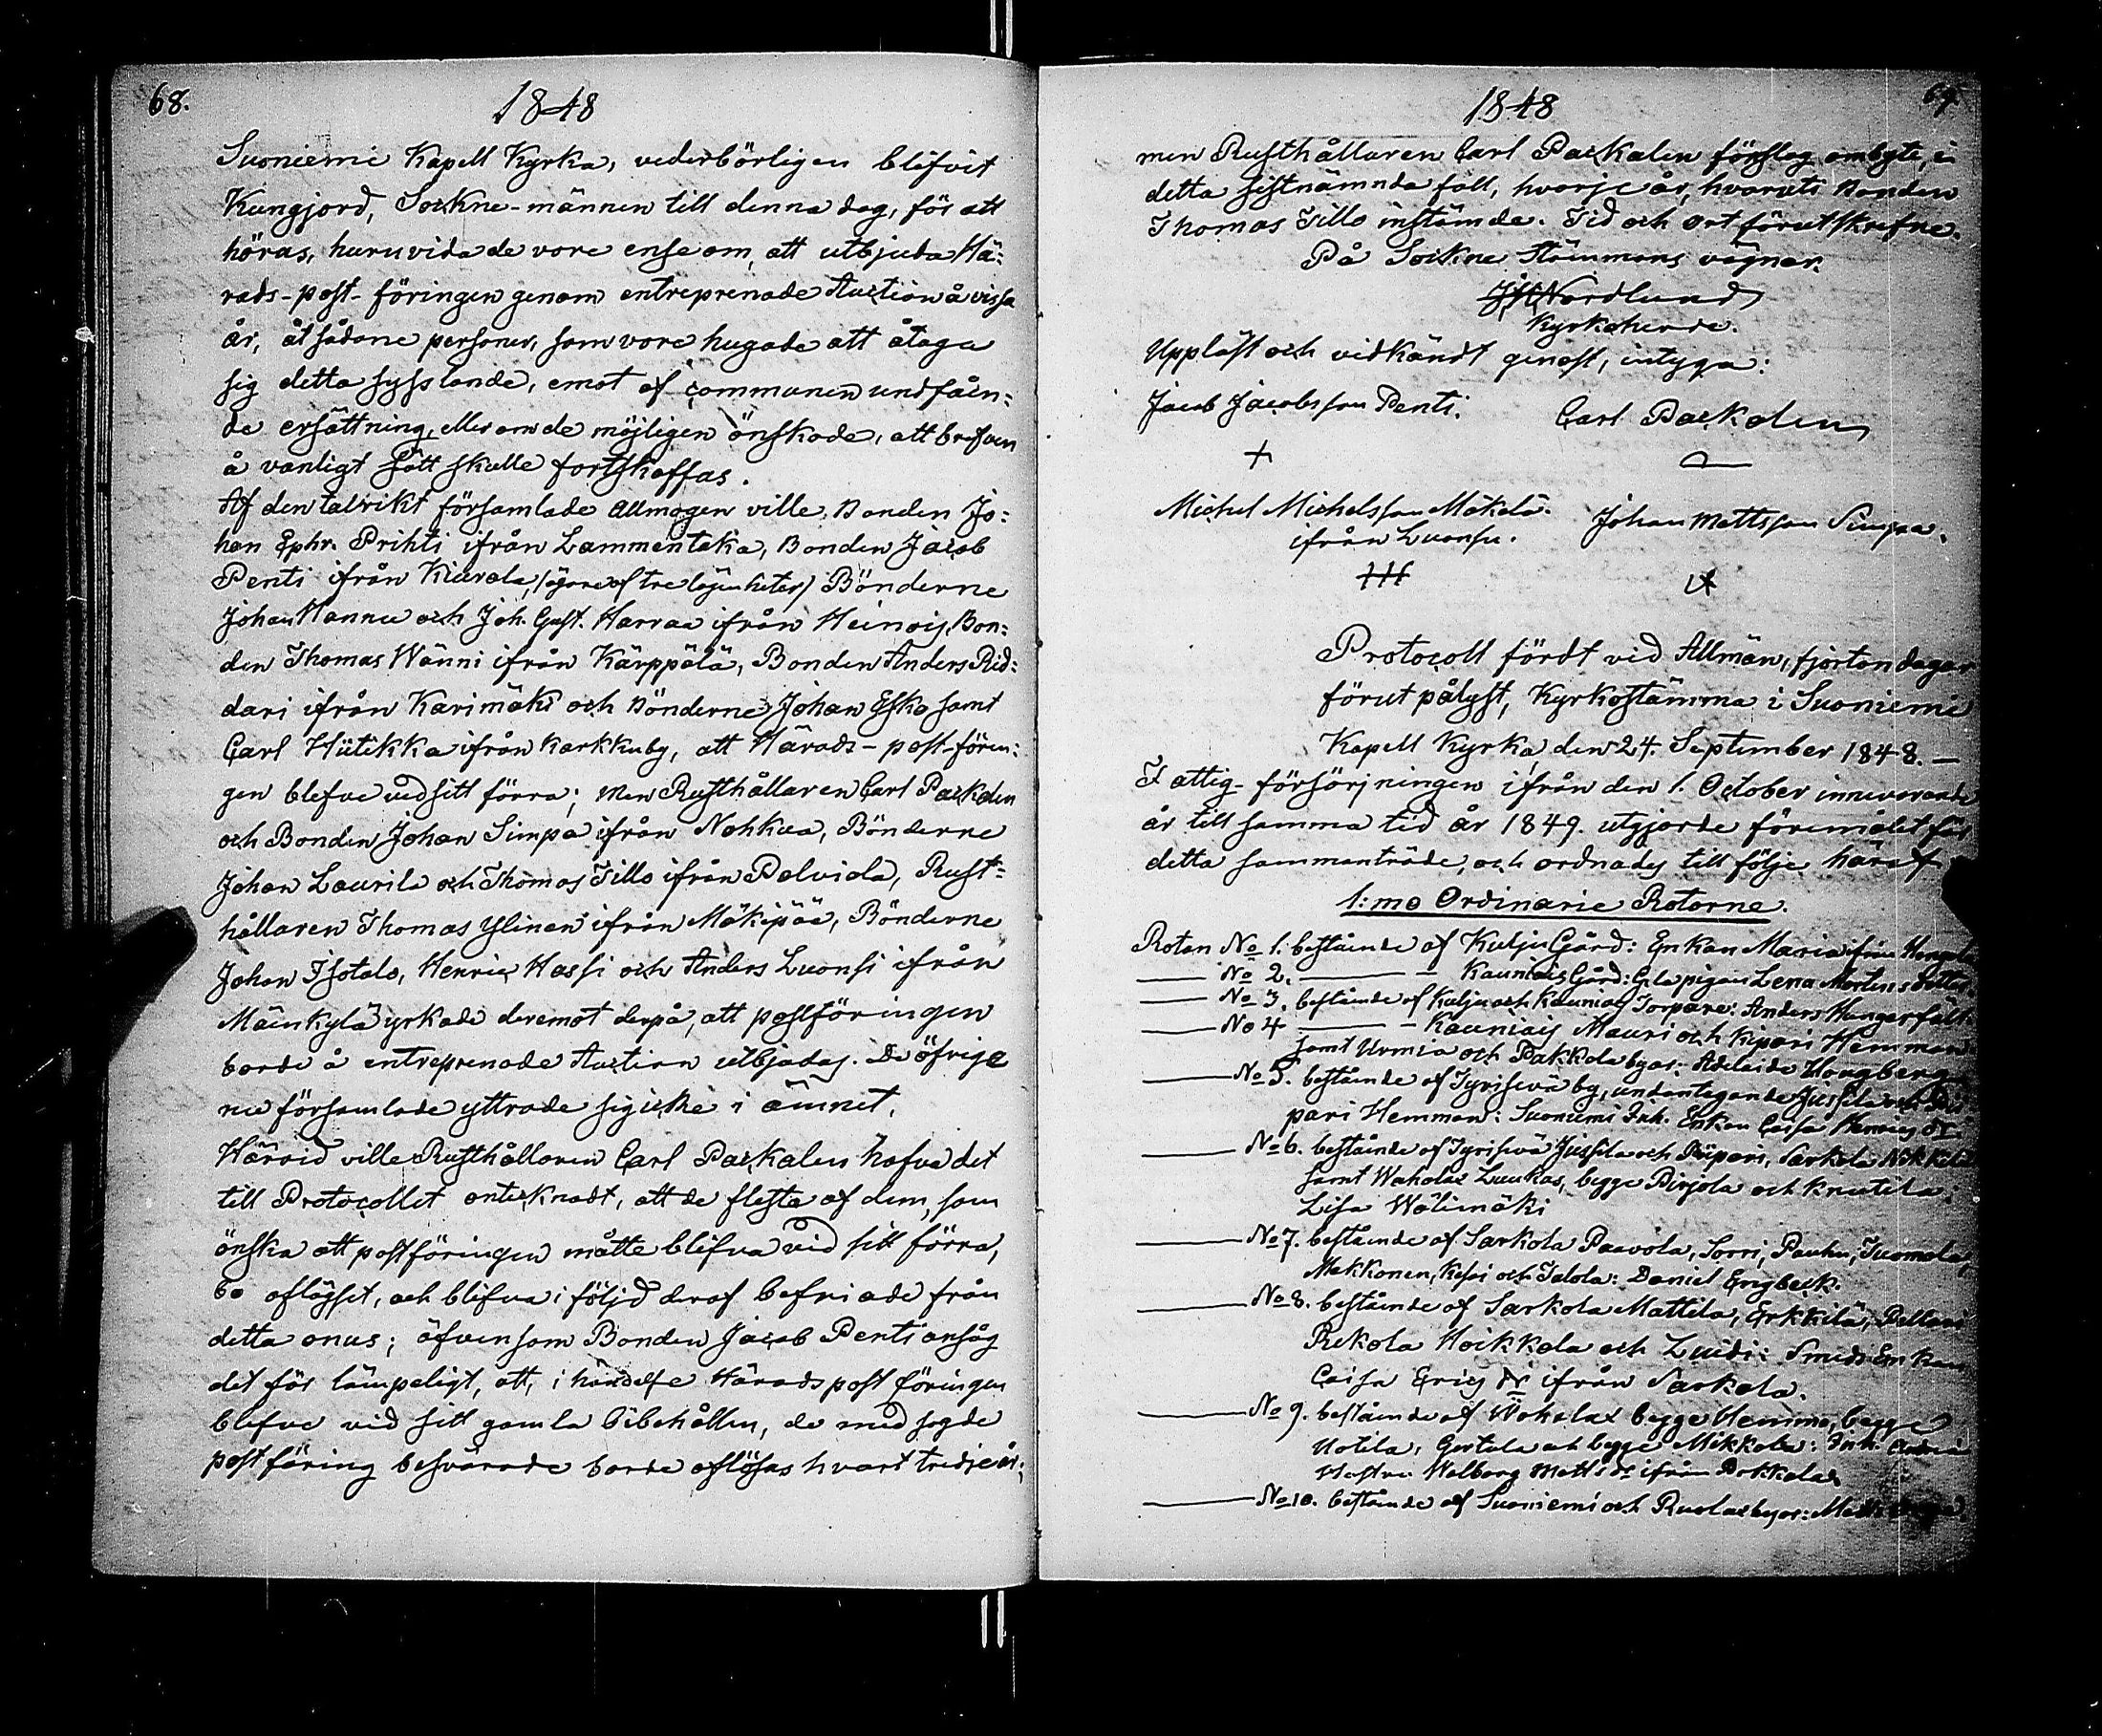 68.
1848
Suoniemi Kapell Kyrka, vederbörligen blifvit
Kungjord, Sockne-männen till denna dag, för att
höras, huruvida de vore ense om, att utbjuda Hä-
rads-post-föringen genom entreprenade Auction å vissa
år, åt sådane personer, som vore hugade att åtaga
sig detta sysslande, emot af communen undfåen-
de ersättning, eller om de möjligen önskade, att brefven
å vanligt sätt skulle fortskaffas.
Af den talrikt församlade Allmogen ville, Bonden Jo-
han Ephr. Prihti ifrån Lammentaka, Bonden Jacob
Penti ifrån Kiurala, (ägare af tre lägenheter) Bönderne
Johan Hannu och Joh. Gust. Harraa ifrån Heinois, Bon-
den Thomas Wänni ifrån Kärppälä, Bonden Anders Rid-
dari ifrån Karimäki och Bönderne Johan Esko samt
Carl Hiitikka ifrån Karkkuby, att Härads-post-förin-
gen blefve vid sitt förra; men Rusthållaren Carl Packalen
och Bonden Johan Simpa ifrån Nohkua, Bönderne
Johan Laurila och Thomas Tillo ifrån Palviala, Rust-
hållaren Thomas Ylinen ifrån Mäkipää, Bönderne
Johan Isotalo, Henric Hassi och Anders Luonsi ifrån
Mäenkylä yrkade deremot derpå, att postföringen
borde å entreprenade Auction utbjudas. De öfrige
nu församlade yttrade sig icke i ämnet.
Härvid ville Rusthållaren Carl Packalen hafva det
till Protocollet antecknadt, att de flesta af dem, som
önska att postföringen måtte blifva vid sitt förra,
bo aflägset, och blifva i följd deraf befriade från
detta onus; äfvensom Bonden Jacob Penti ansåg
det för lämpeligt, att, i händelse Häradspostföringen
blefve vid sitt gamla bibehållen, de med sagde
postföring besvärade borde aflösas hvart tredje år;
69.
1848
men Rusthållaren Carl Packalen föreslog ombyte, i
detta sistnämnda fall, hvarje år, hvaruti Bonden
Thomas Tillo instämde. Tid och ort förut skrefne.
På Sockne Stämmans vägnar.
Nordlund
Kyrkoherde.
Uppläst och vidkändt genast, intyga:
Jacob Jacobsson Penti. Carl Packalen
Michel Michelsson Mäkelä Johan Mattsson Simpa.
ifrån Luonsu.
Protocoll fördt vid Allmän, fjorton dagar
förut pålyst, Kyrkostämma i Suoniemi
Kapell Kyrka, den 24. September 1848. —
Fattig-försörjningen ifrån den 1. October innevarande
år till samma tid år 1849. utgjorde föremålet för
detta sammanträde, och ordnades till följe häraf
1:mo Ordinarie Rotorne.
Rotan No 1. bestående af Kulju Gård: Enkan Maria ifrån
— No 2. — — Kauniais Gård: G.la pigan Lena Mortens dotter.
— No 3. bestående af Kulju och Kauniais Torpare: Anders Hungerfält.
— No 4 — — Kauniais Mauri och Kipari Hemman
samt Urmia och Pakkala byar: Adelaide Hougberg
— No 5. bestående af Tyrisevä by, undantagande Jussila och
pari Hemman: Suoniemi Inh. Enkan Caisa Henrics Dr.
— No 6. bestående af Tyrisevä Jussila och Piipari, Sarkola Nikkilä
samt Wahalax Luukas, begge Pirjola och Knuutila:
Lisa Wälimäki
— No 7. bestående af Sarkola Paavola, Sorri, Pauhu, Tuomala,
Makkonen, Kesai och Talola: Daniel Engbeck.
— No 8. bestående af Sarkola Mattila, Erkkilä, Pellari
Rekola Hoikkala och Luidi: Smeds Enkan
Caisa Erics Dr ifrån Sarkola.
— No 9. bestående af Wahalax begge Hemmo, begge
Uotila, Gertula och begge Mikkola: Inh.
Walborg Matts Dr ifrån Pakkala.
— No 10. bestående af Suoniemi och Ruolax byar: Matts